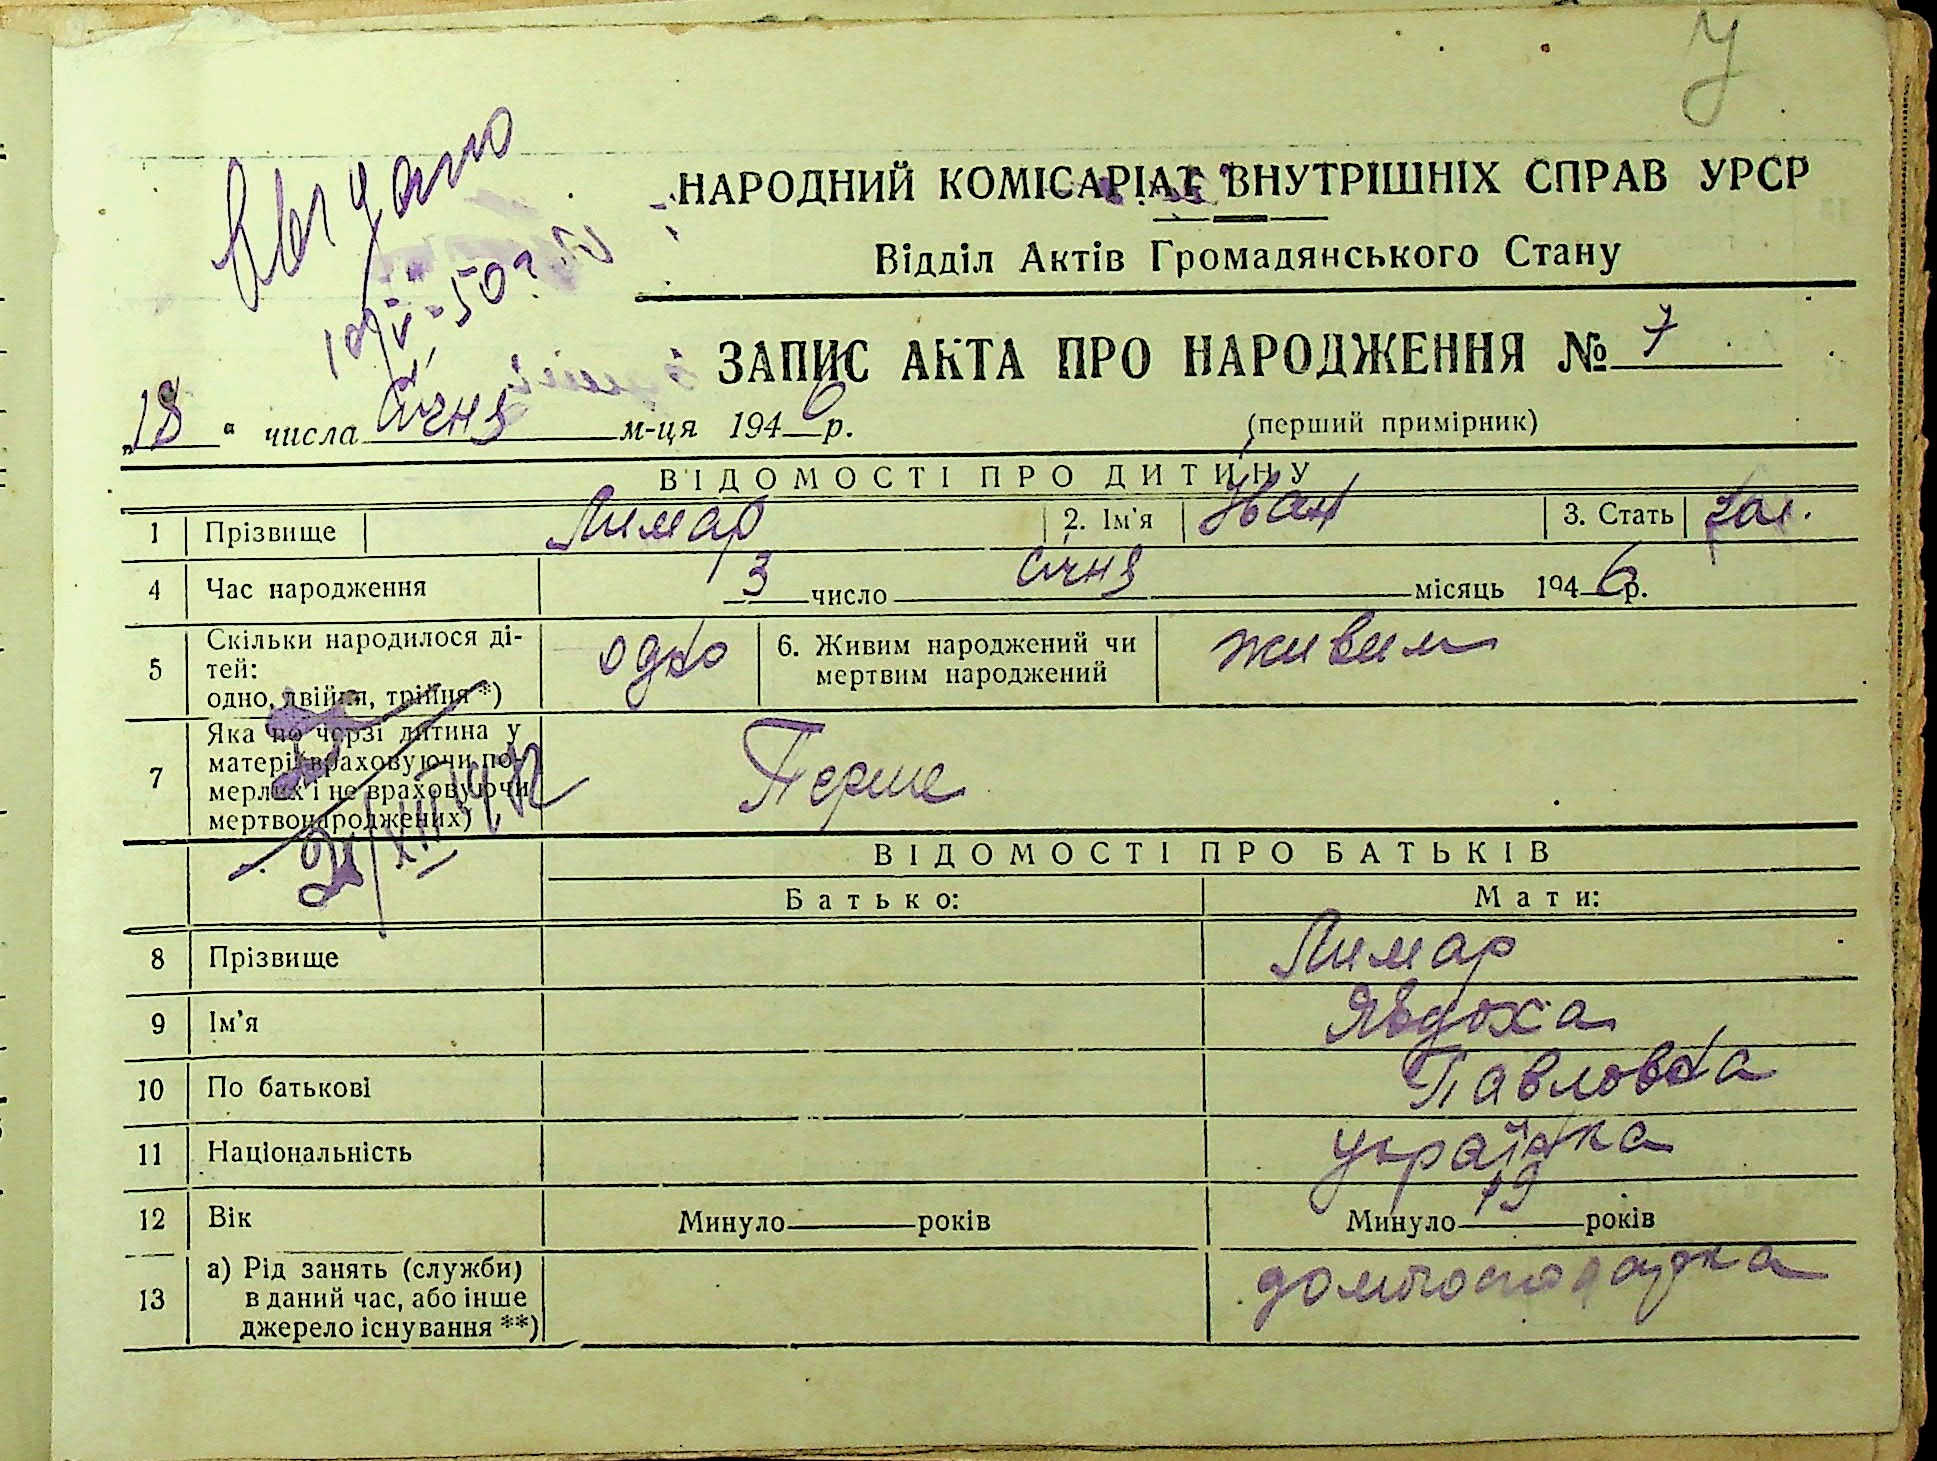 У
Видано
19/V-50 г.
НАРОДНИЙ КОМІСАРІАТ ВНУТРІШНІХ СПРАВ УРСР
Відділ Актів Громадянського Стану
ЗАПИС АКТА ПРО НАРОДЖЕННЯ № 7
„18“ числа січня м-ця 1946 р. (перший примірник)
ВІДОМОСТІ ПРО ДИТИНУ
1 Прізвище Лимар 2. Ім'я Іван 3. Стать чол.
4 Час народження 3 число січня місяць 1946 р.
5 Скільки народилося ді-
тей:
одно, двійня, трійня *) одно 6. Живим народжений чи
мертвим народжений живим
7 Яка по черзі дитина у
матері (враховуючи по-
мерлих і не враховуючи
мертвонароджених) Перше
ВІДОМОСТІ ПРО БАТЬКІВ
Батько: Мати:
8 Прізвище Лимар
9 Ім'я Явдоха
10 По батькові Павловна
11 Національність українка
12 Вік Минуло років Минуло 19 років
13 а) Рід занять (служби)
в даний час, або інше
джерело існування **) домгосподарка